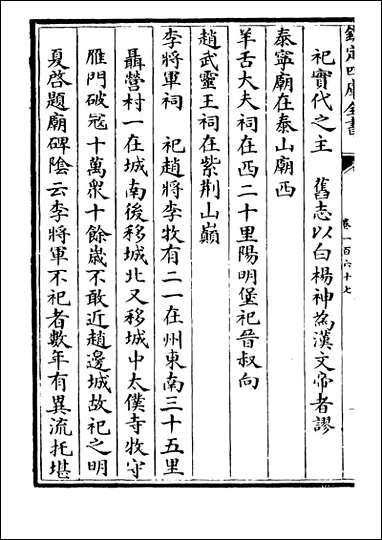 欽定四庫全書
卷一百六十七
祀實代之主　舊志以白楊神為漢文帝者謬
泰寧廟在泰山廟西
羊舌大夫祠在西二十里陽明堡祀晉叔向
趙武靈王祠在紫荆山巔
李將軍祠　祀趙將李牧有二一在州東南三十五里
聶營村一在城南後移城北又移城中太僕寺牧守
雁門破寇十萬衆十餘嵗不敢近趙邊城故祀之明
夏啓題廟碑陰云李將軍不祀者數年有異流托堪